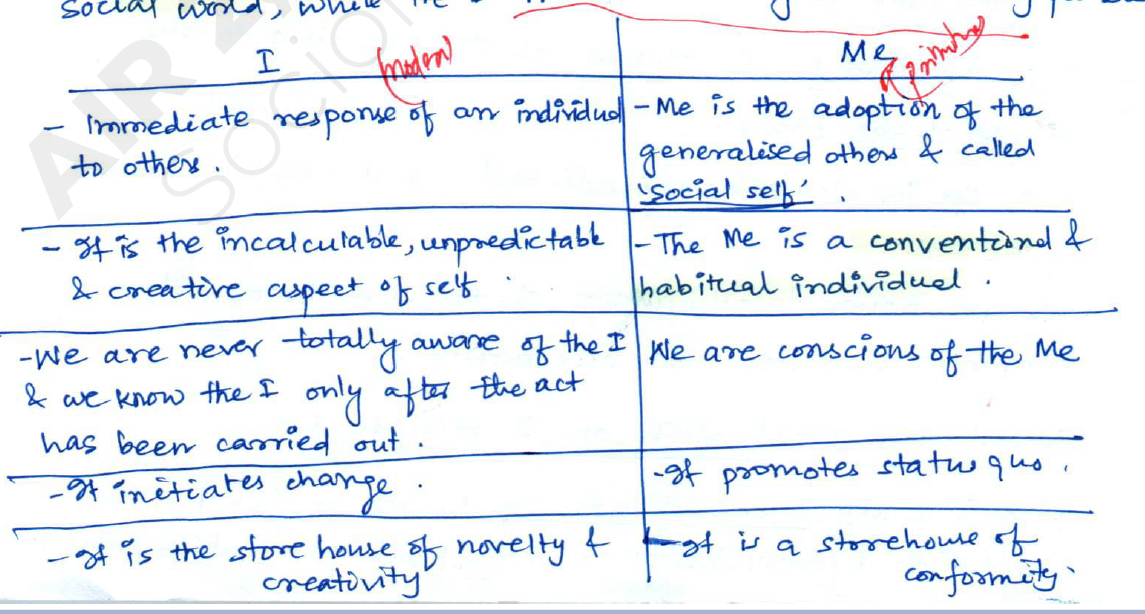 social world, while the
I (modern) Me (primitive)
- Immediate response of an individual to others.
- Me is the adoption of the generalised others & called 'social self'.
- It is the incalculable, unpredictable & creative aspect of self.
- The Me is a conventional & habitual individual.
- We are never totally aware of the I & we know the I only after the act has been carried out.
We are conscions of the Me
- It initiates change.
- It promotes status quo.
- It is the store house of novelty & creativity
- It is a storehouse of conformity.
AIR
Socio